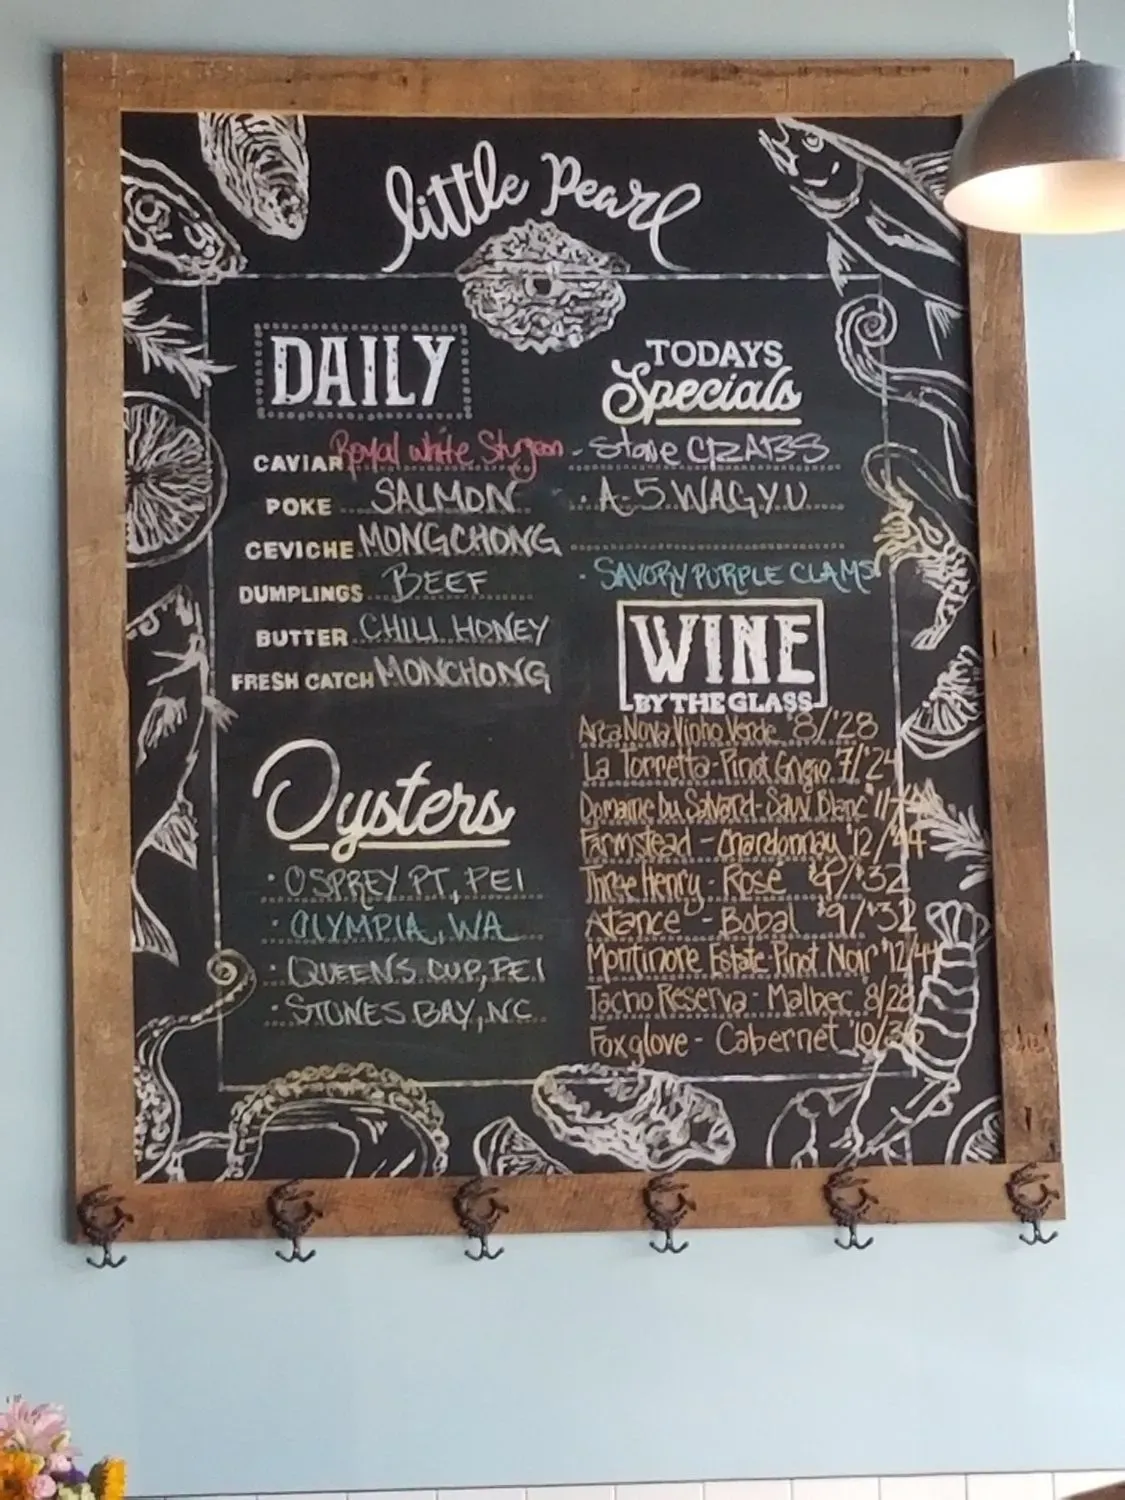 little Pearl
DAILY
CAVIAR Royal White Sturgeon
POKE SALMON
CEVICHE MONGCHONG
DUMPLINGS BEEF
BUTTER CHILI HONEY
FRESH CATCH MONCHONG
Oysters
· OSPREY PT, PEI
· OLYMPIA, WA
· QUEENS CUP, PEI
· STONES BAY, NC
TODAYS
Specials
- Stone CRABS
· A-5 WAGYU
· SAVORY PURPLE CLAMS
WINE
BY THE GLASS
Arca Nova Vinho Verde $8/$28
La Torretta - Pinot Grigio 7/$24
Domaine Du Salvard - Sauv Blanc $11
Farmstead - Chardonnay $12/$44
Three Henry - Rosé $9/$32
Atance - Bobal $9/$32
Montinore Estate - Pinot Noir $12/44
Tacho Reserva - Malbec 8/28
Foxglove - Cabernet $10/36